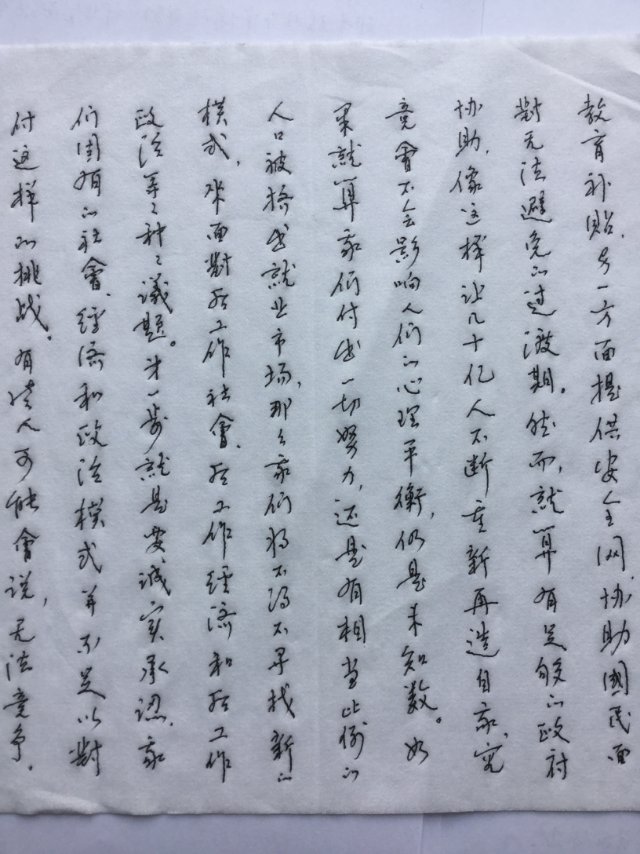 教育补贴.另一方面提供安全网.协助國民面
對无法避免的过渡期。然而,就算有足够的政府
协助,像这样让几十亿人不断重新再造自家,究
竟會不会影响人们的心理平衡,仍是未知数。如
果就算家们付出一切努力,还是有相当比例的
人口被挤出就业市场,那么家们将不得不寻找新的
模式,来面對后工作社會、后工作经济和后工作
政治等之种之議题。第一步就是要诚实承认,家
们固有的社會、经济和政治模式并不足以對
付这样的挑战。有些人可能會说,无法竞争.